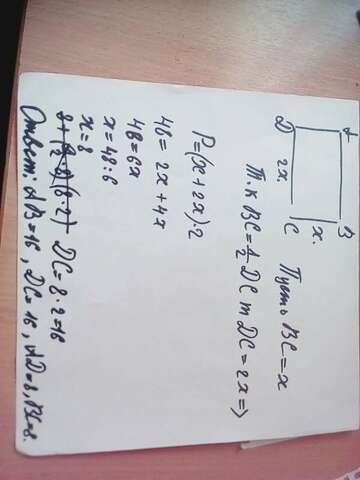 A B
D 2x. C x.
Пусть BC = x
Т.к BC = 1/2 DC т DC = 2x =>
P = (x + 2x) · 2
48 = 2x + 4x
48 = 6x
x = 48 : 6
x = 8
DC = 8 · 2 = 16
Ответ: AB = 16, DC = 16, AD = 8, BC = 8.